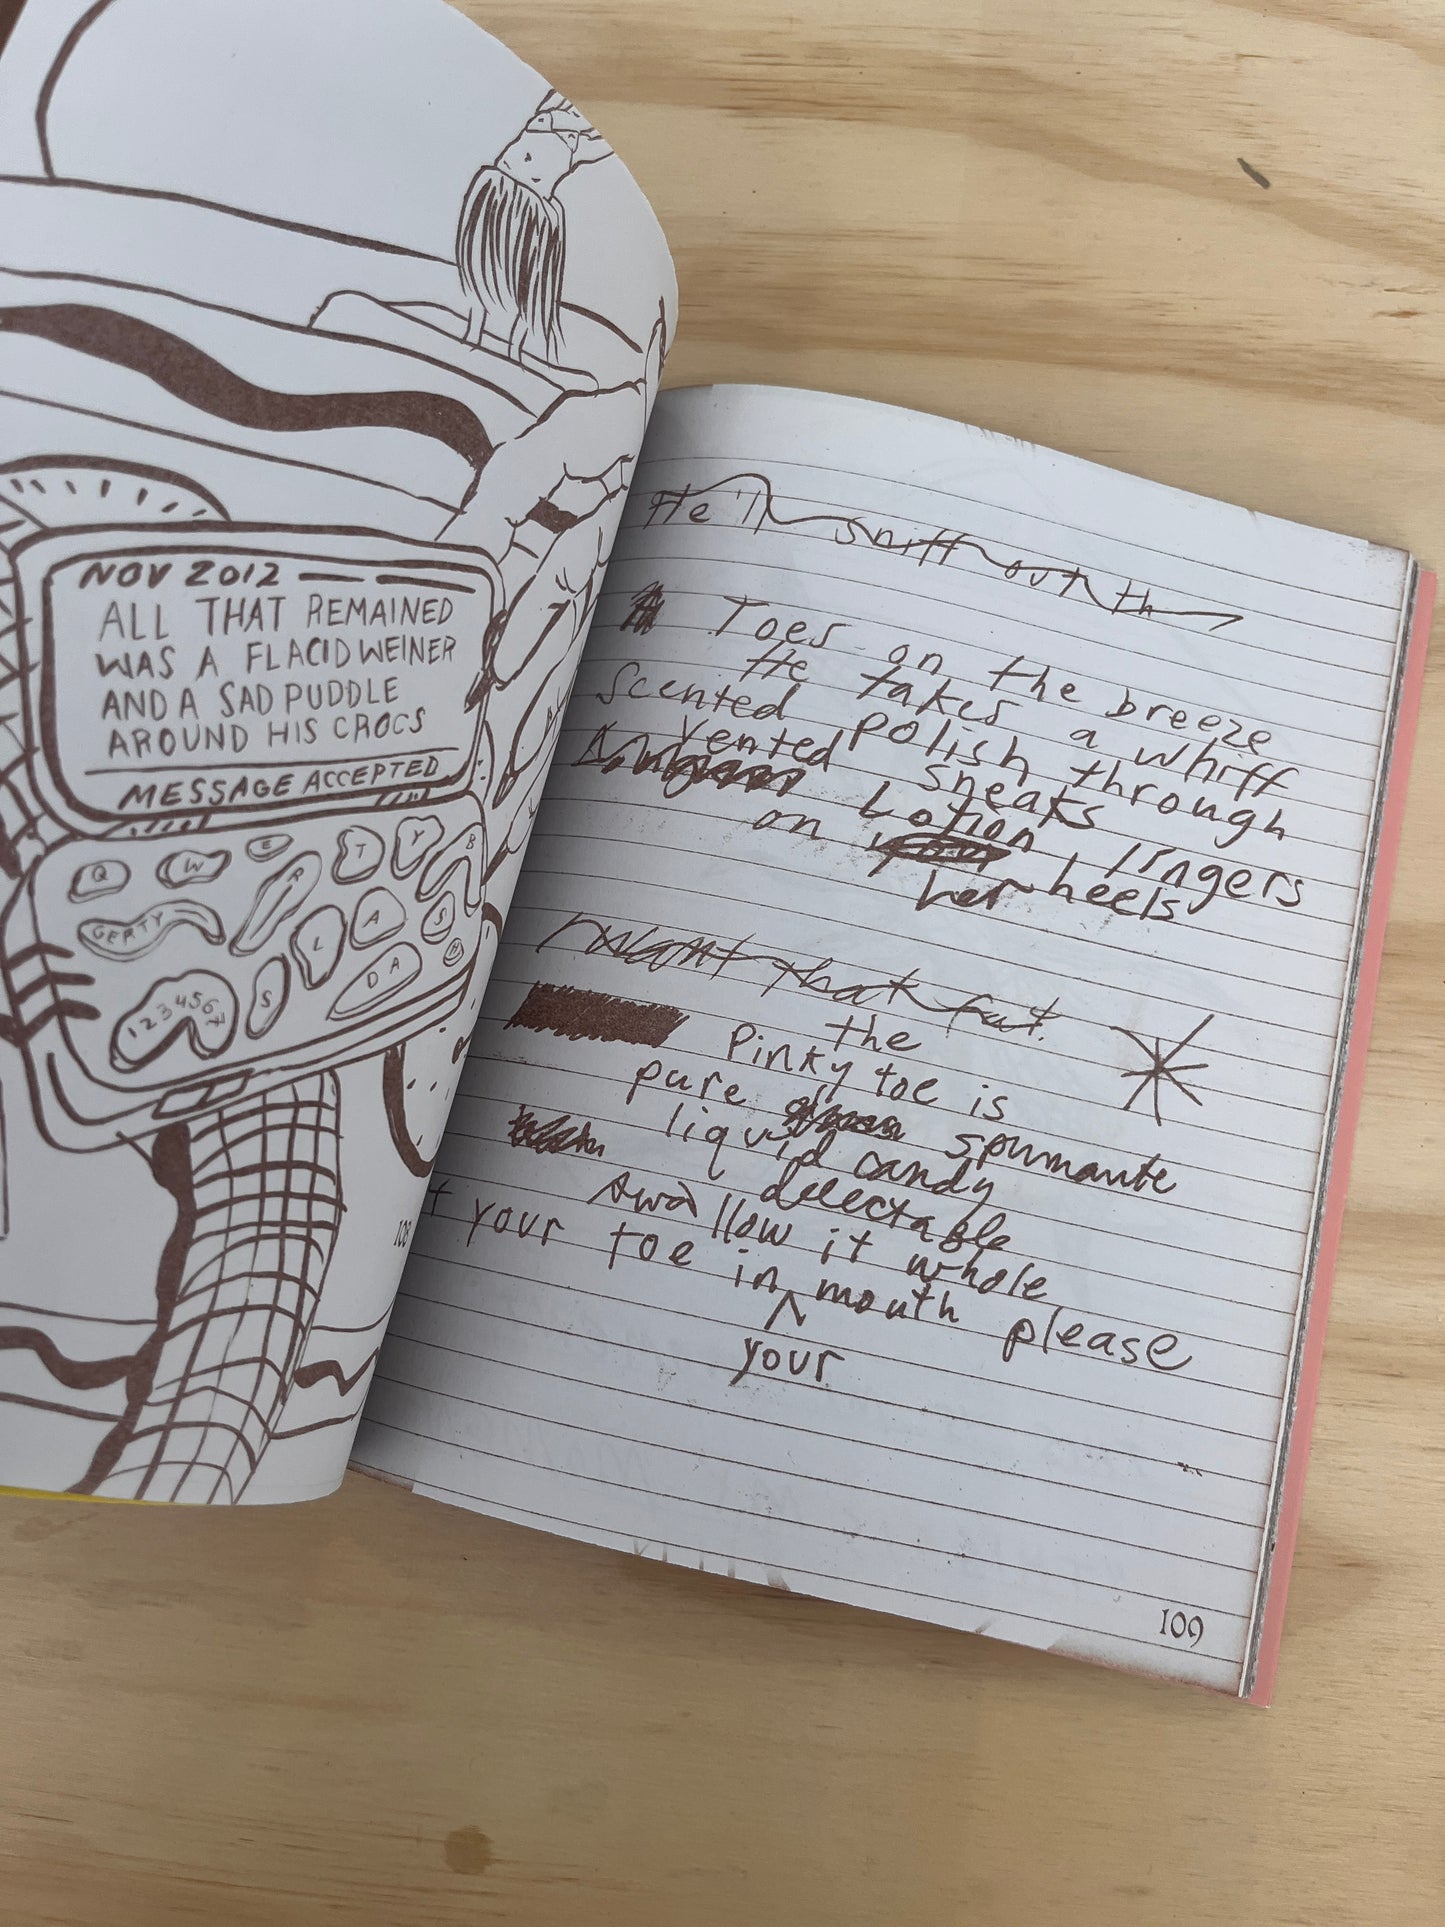 NOV 2012
ALL THAT REMAINED
WAS A FLACID WEINER
AND A SAD PUDDLE
AROUND HIS CROCS
MESSAGE ACCEPTED
Q W E R T Y B
GERTY L A S
1234567 S DA
108
He'll sniff out th
Toes on the breeze
He takes a whiff
Scented polish through
vented sneaks
Lotion lingers
on her heels
I want that fat
the
Pinky toe is
pure spumante
liquid candy
delectable
swallow it whole
t your toe in mouth please
your
109